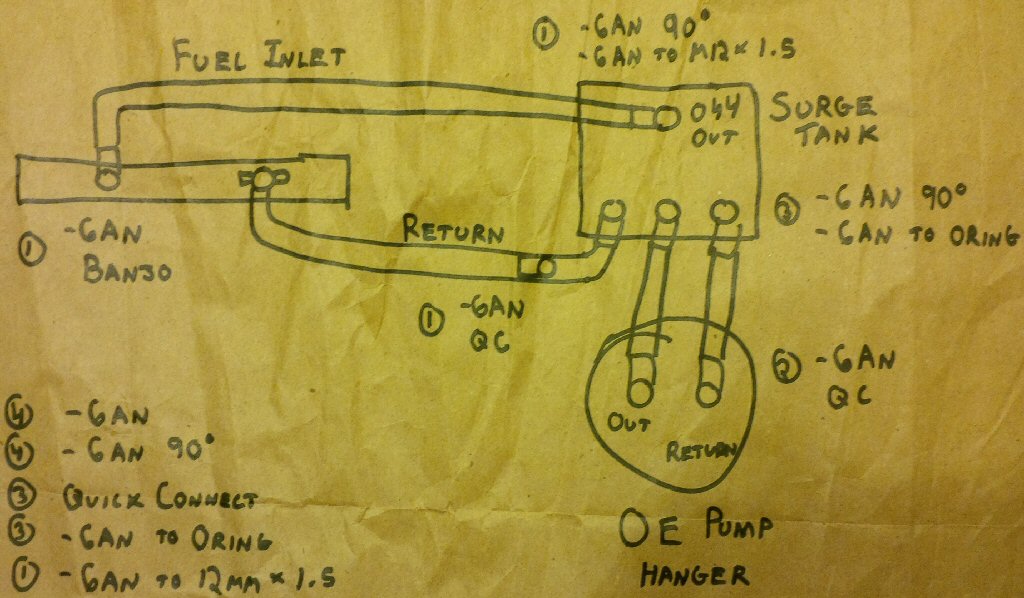 ① -6AN 90°
-6AN TO M12 x 1.5
FUEL INLET
044
OUT
SURGE
TANK
③ -6AN 90°
-6AN TO ORING
① -6AN
BANJO
RETURN
① -6AN
QC
② -6AN
QC
OUT
RETURN
OE PUMP
HANGER
④ -6AN
④ -6AN 90°
③ QUICK CONNECT
③ -6AN TO ORING
① -6AN TO 12MM x 1.5